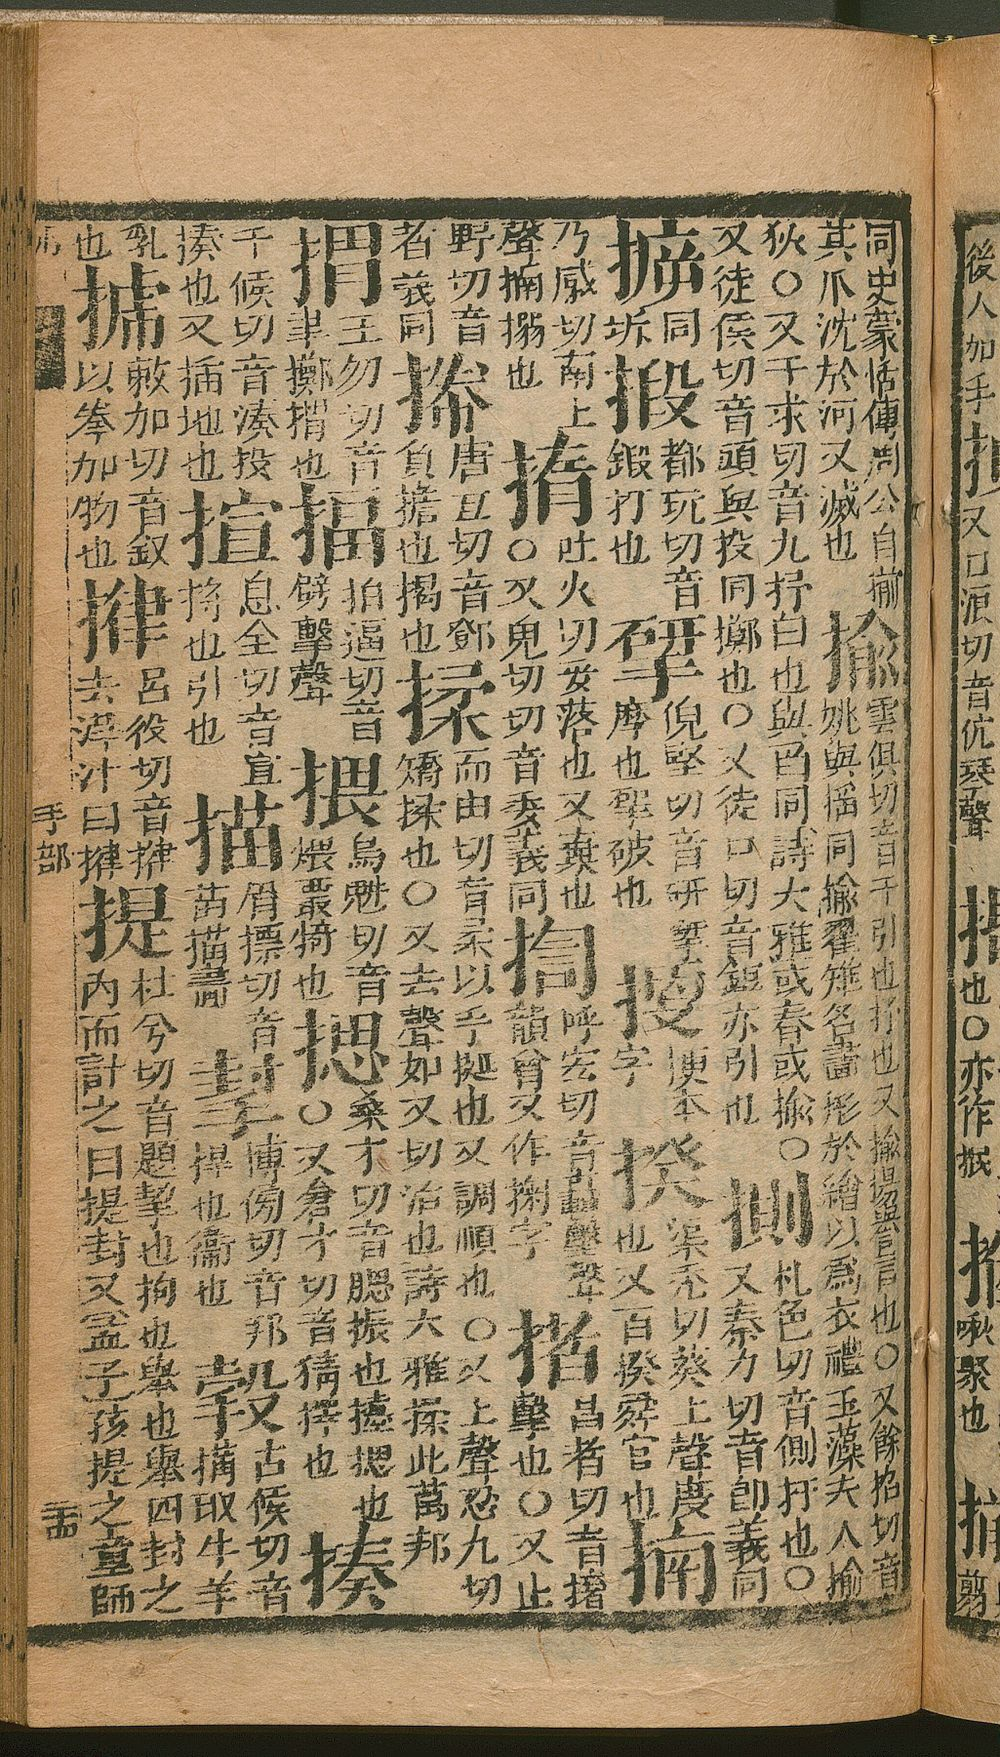 後人加手
又口浪切音伉琴聲
也○亦作抿
啾聚也
翦
同史蒙恬傳周公自揃
其爪沈於河又滅也
揄
雲俱切音于引也抒也又揄揚譽言也○又餘招切音
姚與搖同揄翟雉名畫形於繒以爲衣禮玉藻夫人揄
狄○又于求切音九抒臼也與舀同詩大雅或舂或揄○
又徒侯切音頭與投同擲也○又徒口切音鋀亦引也
札色切音側扜也○
又秦力切音卽義同
同
坼
都玩切音
鍛打也
揅
倪堅切音研揅
摩也揅破也
本
字
揆
渠癸切葵上聲度
也又百揆舜官也
揇
乃感切南上
聲揇搦也
吐火切妥落也又棄也
○又兒切切音委義同
揈
呼宏切音轟擊聲
韻會又作揈字
昌者切音撦
擊也○又止
野切音
者義同
唐亙切音鄧
負擔也揭也
揉
而由切音柔以手挻也又調順也○又上聲忍九切
矯揉也○又去聲如又切治也詩大雅揉此萬邦
王勿切音
聿擲也
揊
拍逼切音
劈擊聲
揋
烏魁切音
煨聚犄也
揌
桑才切音腮振也擡揌也
○又倉才切音猜擇也
揍
千候切音湊投
揍也又插地也
揎
息全切音宣
捋也引也
描
眉摽切音
苗描畫
㨍
博傍切音邦
捍也衞也
㨌
古候切音
搆取牛羊
乳
也
敕加切音釵
以拳加物也
呂役切音
去滓汁曰
提
杜兮切音題挈也拘也舉也舉四封之
內而計之曰提封又孟子孩提之童師
手部